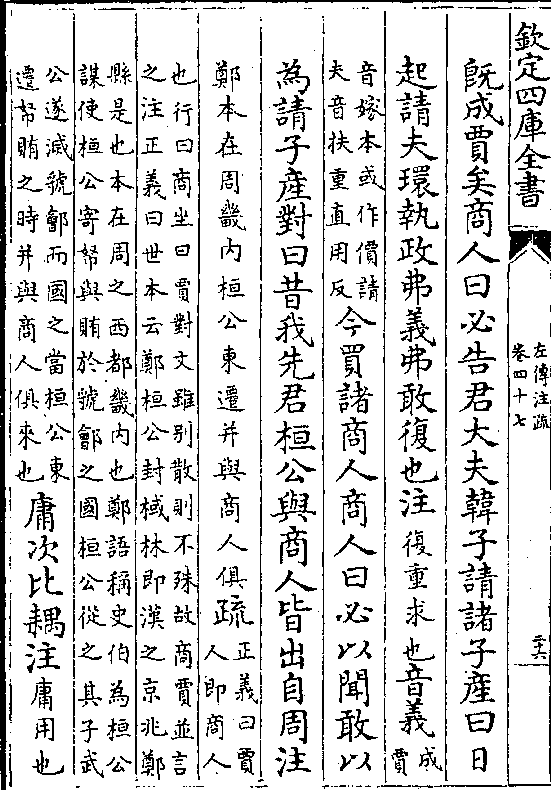 欽定四庫全書
左傳注疏
卷四十七
三十六
既成賈矣商人曰必告君大夫韓子請諸子產曰日
起請夫環執政弗義弗敢復也注復重求也音義成賈
音嫁本或作價請
夫音扶重直用反
今買諸商人商人曰必以聞敢以
為請子產對曰昔我先君桓公與商人皆出自周注
鄭本在周畿內桓公東遷并與商人俱疏正義曰賈人即商人
也行曰商坐曰賈對文雖别散則不殊故商賈並言
之注正義曰世本云鄭桓公封棫林即漢之京兆鄭
縣是也本在周之西都畿内也鄭語稱史伯為桓公
謀使桓公寄帑與賄於虢鄶之國桓公從之其子武
公遂滅虢鄶而國之當桓公東
遷帑賄之時并與商人俱來也
庸次比耦注庸用也